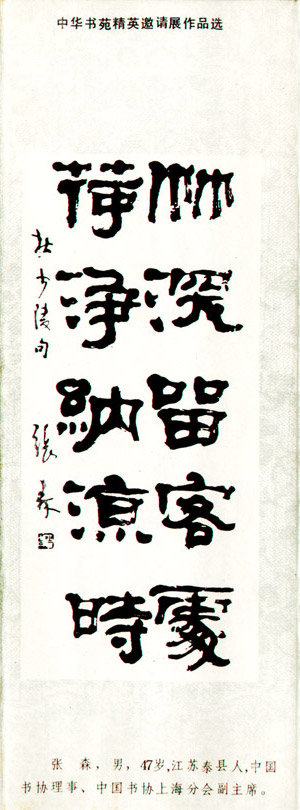 中华书苑精英邀请展作品选
竹深留客處
荷淨納涼時
杜少陵句 張森
张森，男，47岁，江苏泰县人，中国
书协理事、中国书协上海分会副主席。